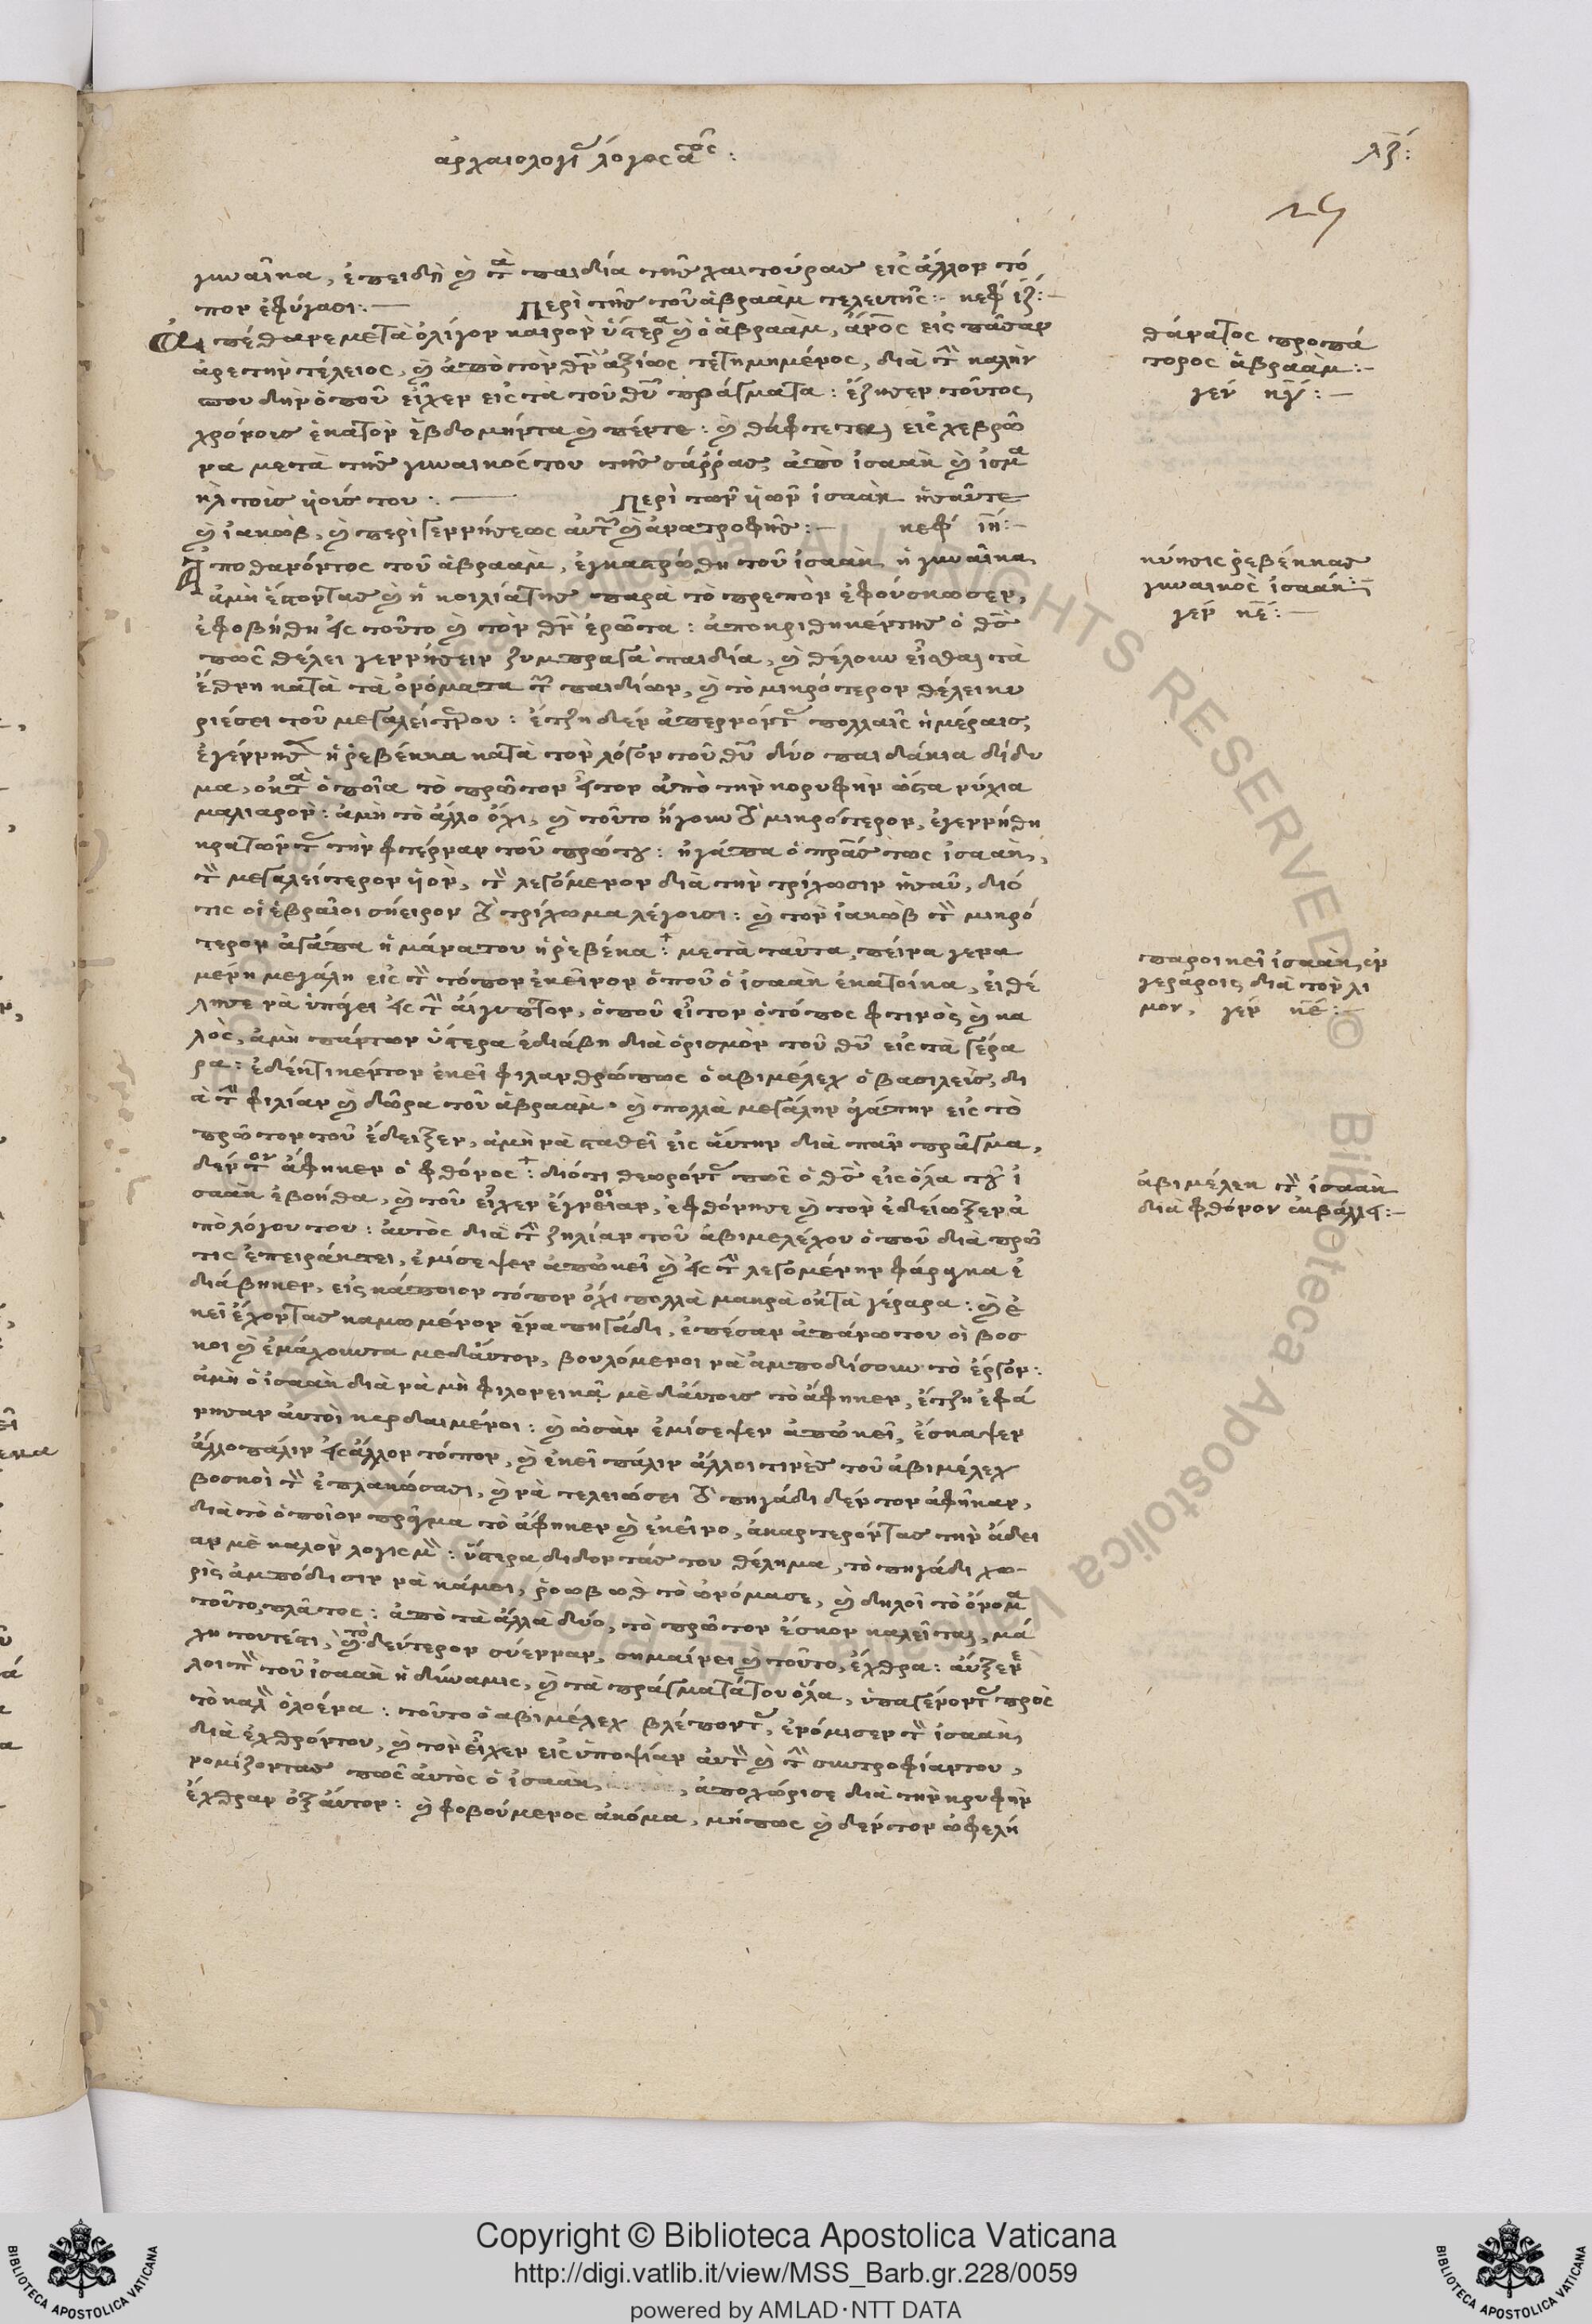 ἀρχαιολογίας λόγος αος:
λζ:
γυναῖκα, ἐπειδὴ καὶ τὰ παιδία τῆς χαιτούρας εἰς ἄλλον τό
πον ἐφύγασι:— Περὶ τῆς τοῦ ἀβραὰμ τελευτῆς:- κεφ ιζ:-
Ἀπέθανε μετὰ ὀλίγον καιρὸν ὕστερα καὶ ὁ ἀβραὰμ, ἄνος εἰς πᾶσαν
ἀρετὴν τέλειος, καὶ ἀπὸ τὸν θν ἀξίως τετημημένος, διὰ τὴν καλὴν
σπουδὴν ὁποῦ εἶχεν εἰς τὰ τοῦ θυ πράγματα: ἔζησεν τοῦτος
χρόνους ἑκατὸν ἑβδομήντα καὶ πέντε: καὶ θάφτεται εἰς χεβρῶ
να μετὰ τῆς γυναικός του τῆς σάρρας, ἀπὸ ἰσαὰκ καὶ ἰσμα
ὴλ τοὶς ὑοίς του:— Περὶ τῶν ὑῶν ἰσαὰκ ἠσαῦτε
καὶ ἰακὼβ, καὶ περὶ γεννήσεως αὐτῶν καὶ ἀνατροφῆς:— κεφ ιη:-
Ἀποθανόντος τοῦ ἀβραὰμ, ἐγκαστρώθη τοῦ ἰσαὰκ ἡ γυναῖκα,
ἀμὴ ἔστοντας καὶ ἡ κοιλιάτης παρὰ τὸ πρεπὸν ἐφούσκωσεν,
ἐφοβήθη εἰς τοῦτο καὶ τὸν θν ἐρώτα: ἀποκριθηκέντης ὁ θς
πῶς θέλει γεννήσειν ζυμπραγὰ παιδία, καὶ θέλουν εἶσθαι τὰ
ἔθνη κατὰ τὰ ὀνόματα τῶν παιδίων, καὶ τὸ μικρότερον θέλει κυ
ριέσει τοῦ μεγαλείτρου: ἔτζη δὲν ἀπερνόντας πολλαῖς ἡμέραις,
ἐγέννησε ἡ ῥεβέκκα κατὰ τὸν λόγον τοῦ θυ δύο παιδάκια δίδυ
μα, ἐκ τὰ ὁποῖα τὸ πρῶτον ἦτον ἀπὸ τὴν κορυφὴν ὥστα νύχια
μαλιαρόν: ἀμὴ τὸ ἄλλο ὄχι, καὶ τοῦτο ἤγουν τὸ μικρότερον, ἐγεννήθη
κρατῶντας τὴν φτέρναν τοῦ πρώτου: ἠγάπα ὁ πρας τως ἰσαὰκ,
τὸν μεγαλείτερον ὑὸν, τὸν λεγόμενον διὰ τὴν τρίχωσιν ἠσαῦ, διό
τις οἱ ἑβραῖοι σήειρον τὸ τρίχωμα λέγοισι: καὶ τὸν ἰακὼβ τὸν μικρό
τερον ἀγάπα ἡ μάνα του ἡ ῥεβέκα: μετὰ ταῦτα, πείνα γενα
μένη μεγάλη εἰς τὸν τόπον ἐκεῖνον ὁποῦ ὁ ἰσαὰκ ἐκατοίκα, εἰθέ
λησε νὰ ὑπάγει εἰς τὴν αἴγυπτον, ὁποῦ εἶτον ὁ τόπος φτινὸς καὶ κα
λὸς, ἀμὴ πάντων ὕστερα ἐδιάβη διὰ ὁρισμὸν τοῦ θυ εἰς τὰ γέρα
ρα: ἐδέχτικέντον ἐκεῖ φιλανθρώπως ὁ αβιμέλεχ ὁ βασιλεὺς, δι
ὰ τὴν φιλίαν καὶ δῶρα τοῦ ἀβραὰμ· καὶ πολλὰ μεγάλην ἀγάπην εἰς τὸ
πρῶτον τοῦ ἔδειξεν, ἀμὴ νὰ σταθεῖ εἰς αὕτην διὰ πᾶν πρᾶγμα,
δὲν τὸν ἄφηκεν ὁ φθόνος: διότι θεωρόντας πῶς ὁ θς εἰς ὅλα τοῦ ἰ
σαὰκ ἐβοήθα, καὶ τοῦ εἶχεν ἔγνοιαν, ἐφθόνησε καὶ τὸν ἐδείωξεν ἀ
πὸ λόγου του: ἀυτὸς διὰ τὴν ζηλίαν τοῦ ἀβιμελέχου ὁποῦ διὰ πρῶ
τις ἐπειράκτει, ἐμίσεψεν ἀπῶκεῖ καὶ εἰς τὴν λεγομένην φάραγκα ἐ
διάβηκεν, εἰς κάποιον τόπον ὄχι πολλὰ μακρὰ ἐκ τὰ γέραρα: καὶ ἐ
κεῖ ἔχοντας καμωμένον ἕνα πηγάδι, ἐπέσαν ἀπάνω του οἱ βοσ
κοι καὶ ἐμάχουντα μεδαὖτον, βουλόμενοι νὰ ἀμποδίσουν τὸ ἔργον:
ἀμὴ ὁ ἰσαὰκ διὰ νὰ μὴ φιλονεικᾶ μὲ δαύτους τὸ ἄφηκεν, ἔτζη ἐφά
νησαν αὐτοὶ κερδαιμένοι: καὶ ὡσὰν ἐμίσεψεν ἀπῶκεῖ, ἔσκαψεν
ἄλλο πάλιν εἰς ἄλλον τόπον, καὶ ἐκεῖ πάλιν ἄλλοι τινὲς τοῦ ἀβιμέλεχ
βοσκοὶ τὸν ἐπλακώσασι, καὶ νὰ τελειώσει τὸ πηγάδι δέν τον ἀφῆκαν,
διὰ τὸ ὁποῖον πρᾶγμα τὸ ἄφηκεν καὶ ἐκεῖνο, ἀκαρτερόντας τὴν ἄδει
αν μὲ καλὸν λογισμὸν: ὕστερα διδοντάς του θέλημα, τὸ πηγάδι χω-
ρὶς ἀμπόδισιν νὰ κάμει, ῥοωβωθ τὸ ὠνόμασε, καὶ δηλοῖ τὸ ὄνομα
τοῦτο, πλάτος: ἀπὸ τὰ ἄλλα δύο, τὸ πρῶτον ἔσκον καλεῖται, μά
χη τουτέστι, καὶ τὸ δεύτερον σύενναν, σημαίνει καὶ τοῦτο, ἔχθρα: αὔξενε
λοιπὸν τοῦ ἰσαὰκ ἡ δύναμις, καὶ τὰ πράγματάτου ὅλα, ὑπαγένοντας πρὸς
τὸ καλὸν ὁλοένα: τοῦτο ὁ αβιμέλεχ βλέποντας, ἐνόμισεν τὸν ἰσαὰκ,
διὰ ἐχθρόντου, καὶ τὸν εἶχεν εἰς ὑποψίαν αὐτὸν καὶ τὴν συντροφίαντου,
νομίζοντας πῶς ἀυτὸς ὁ ἰσαὰκ, ἀποχώρισε διὰ τὴν κρυφὴν
ἔχθραν ἐξ αὐτον: καὶ φοβούμενος ἀκόμα, μήπως καὶ δέν τον ὠφελή
θάνατος προπά
τορος ἀβραὰμ:-
γεν κγ:—
κύησις ῥεβέκκας
γυναικὸς ἰσαάκ:-
γεν κε:—
παροικεῖ ἰσαὰκ ἐν
γεράροις, διὰ τὸν λι
μον, γεν κε:—
ἀβιμέλεκ τὸν ἰσαὰκ
διὰ φθόνον ἐκβάλλει:-
Copyright © Biblioteca Apostolica Vaticana
http://digi.vatlib.it/view/MSS_Barb.gr.228/0059
powered by AMLAD·NTT DATA
BIBLIOTECA APOSTOLICA VATICANA
BIBLIOTECA APOSTOLICA VATICANA